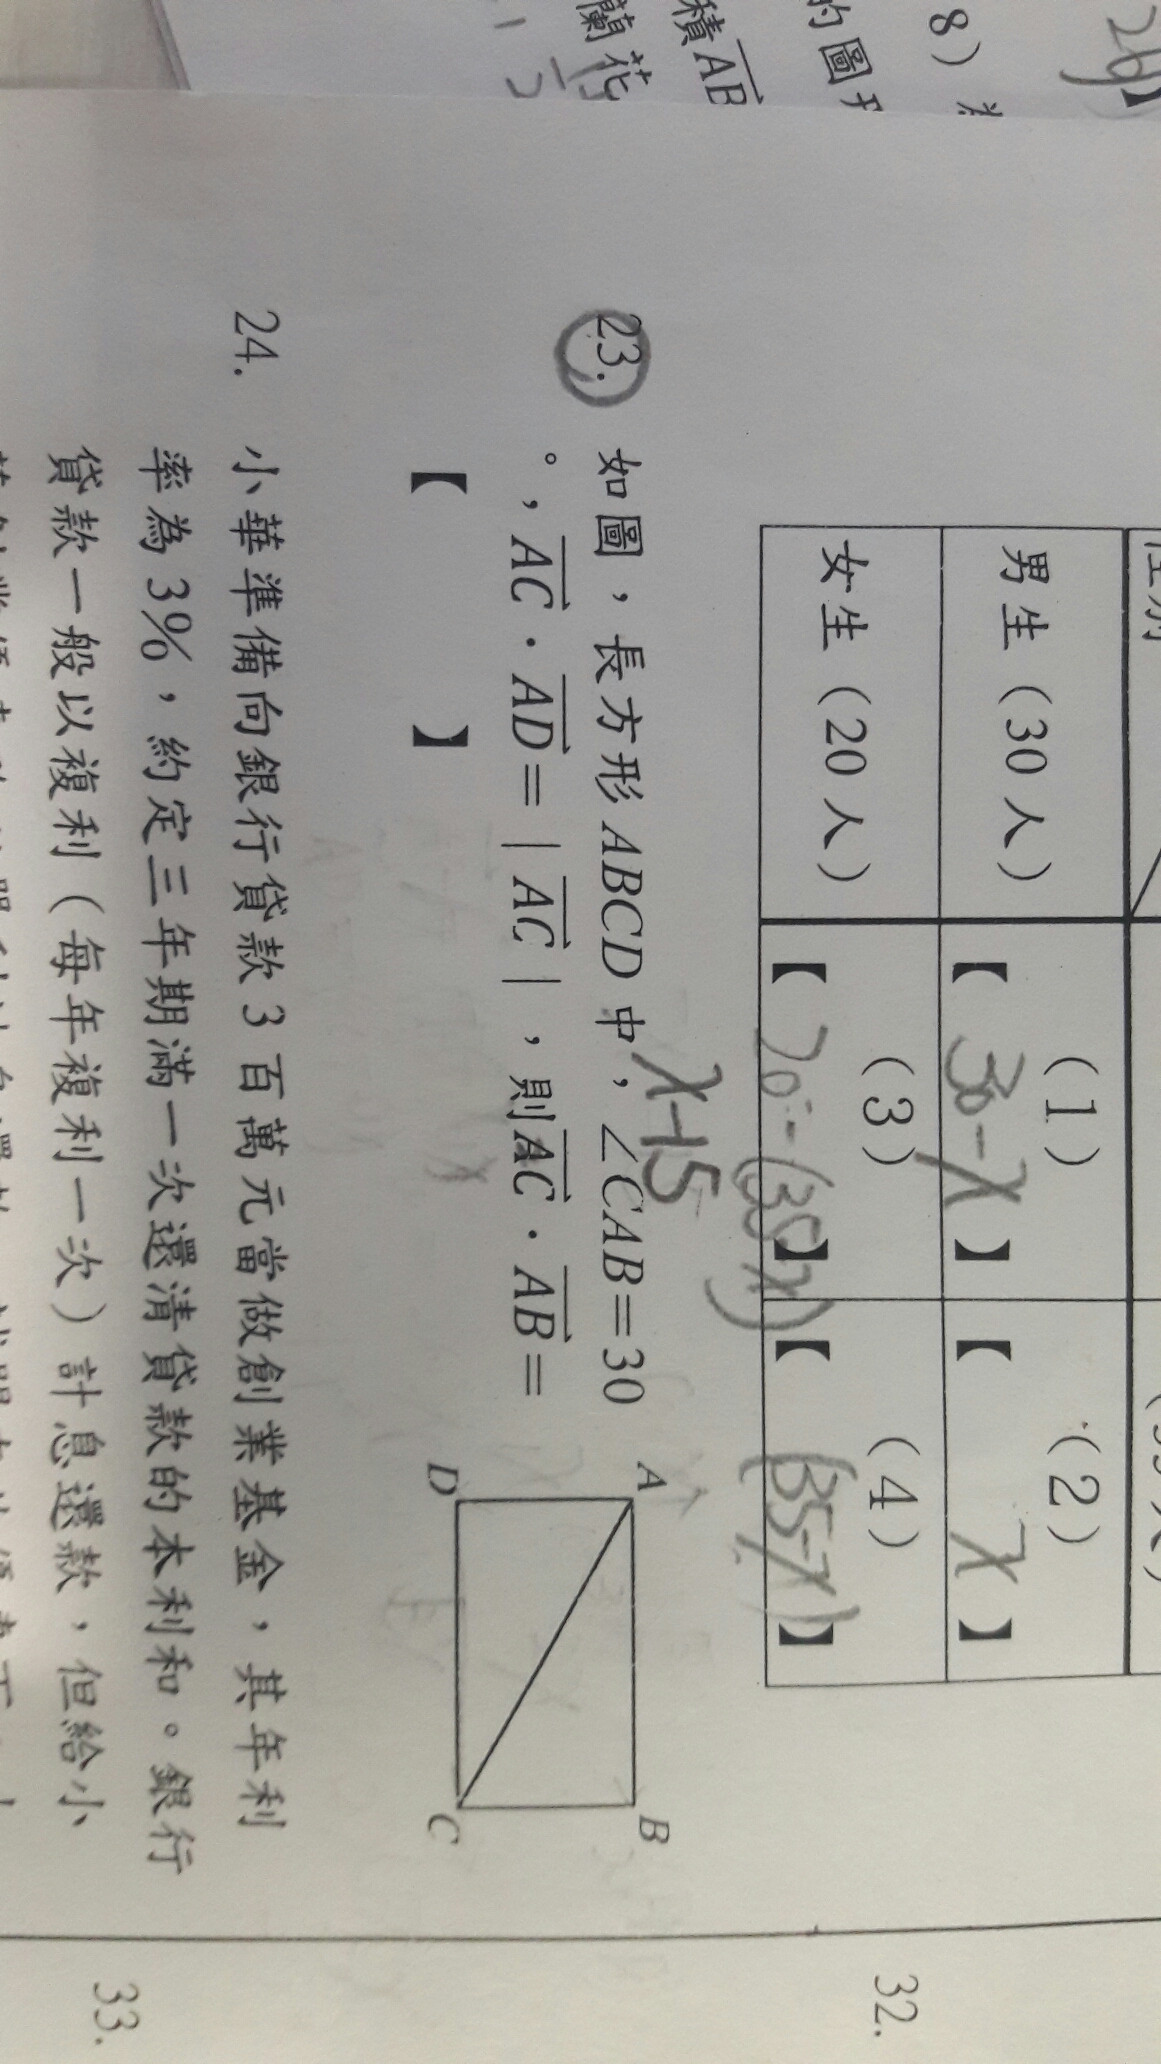 26】
8)
的圖
積AB
蘭花
男生(30人)
(1)
【30-x】
(2)
【x】
女生(20人)
(3)
【20-(35-x)】
(4)
【(35-x)】
x-15
23. 如圖,長方形ABCD中,∠CAB=30
°,AC·AD=|AC|,則AC·AB=
【 】
A
B
D
C
24. 小華準備向銀行貸款3百萬元當做創業基金,其年利
率為3%,約定三年期滿一次還清貸款的本利和。銀行
貸款一般以複利(每年複利一次)計息還款,但給小
32.
33.